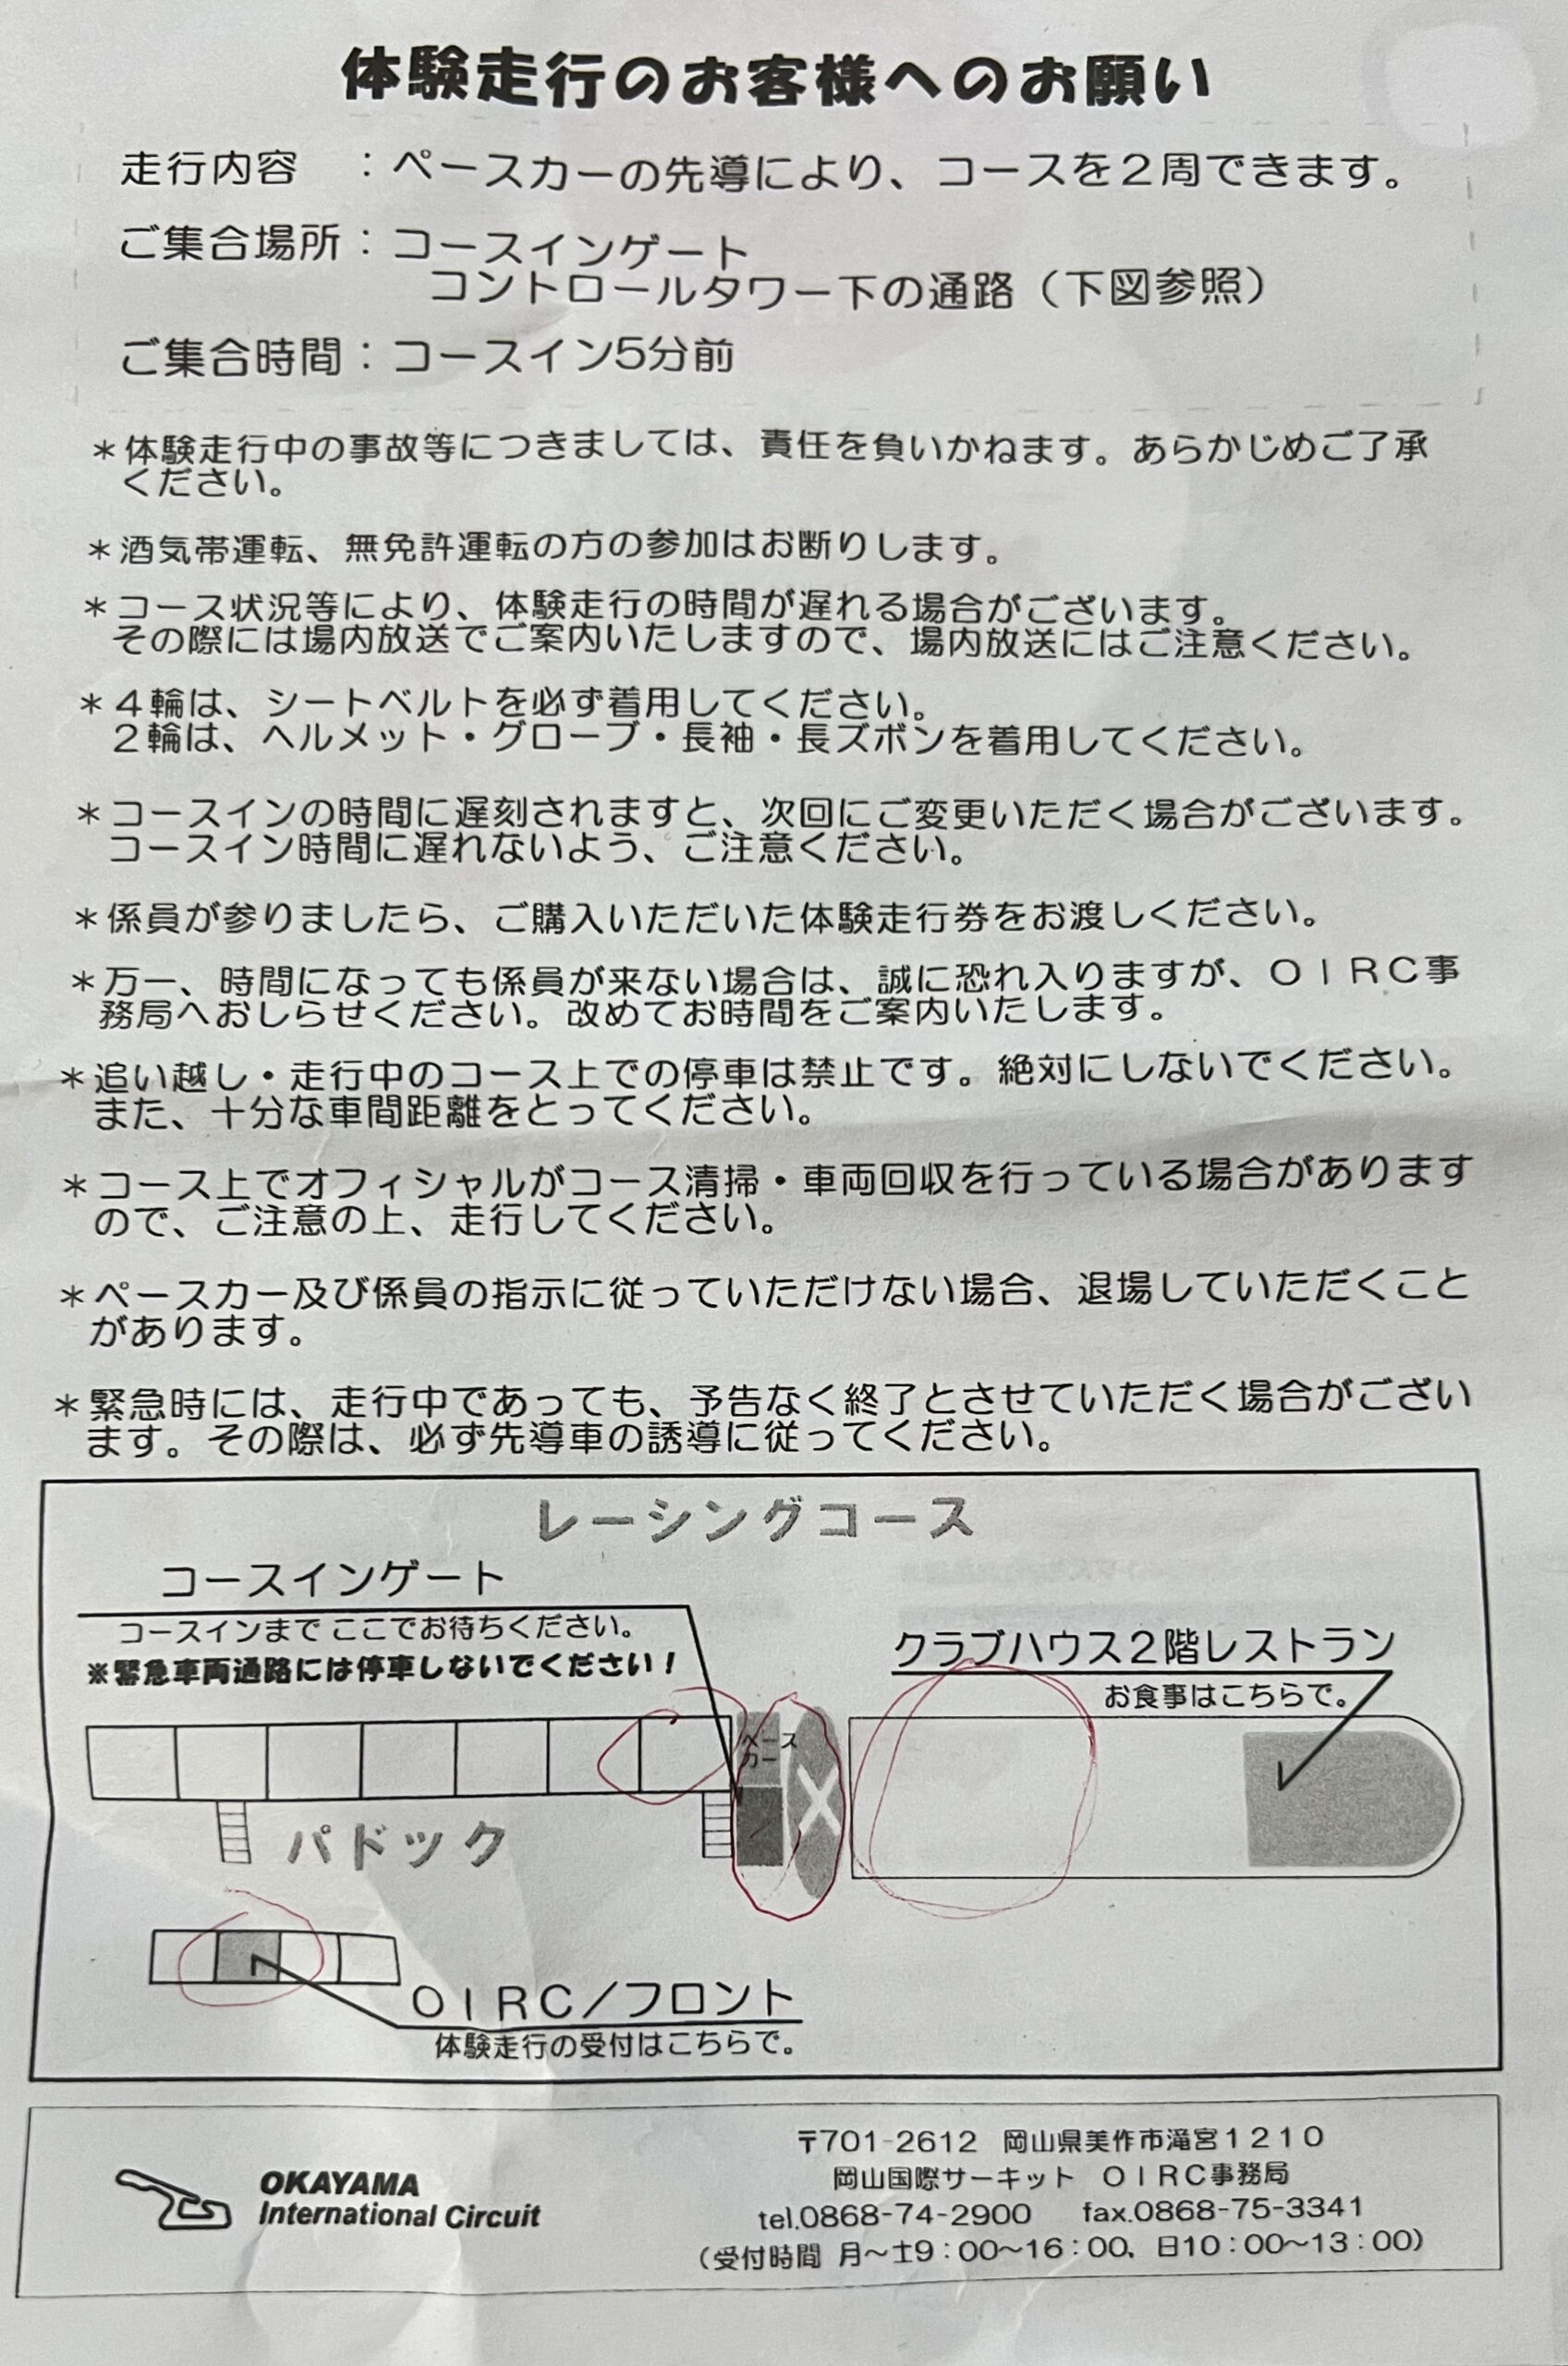 体験走行のお客様へのお願い
走行内容　：ペースカーの先導により、コースを２周できます。
ご集合場所：コースインゲート
コントロールタワー下の通路（下図参照）
ご集合時間：コースイン5分前
＊体験走行中の事故等につきましては、責任を負いかねます。あらかじめご了承
ください。
＊酒気帯運転、無免許運転の方の参加はお断りします。
＊コース状況等により、体験走行の時間が遅れる場合がございます。
その際には場内放送でご案内いたしますので、場内放送にはご注意ください。
＊４輪は、シートベルトを必ず着用してください。
２輪は、ヘルメット・グローブ・長袖・長ズボンを着用してください。
＊コースインの時間に遅刻されますと、次回にご変更いただく場合がございます。
コースイン時間に遅れないよう、ご注意ください。
＊係員が参りましたら、ご購入いただいた体験走行券をお渡しください。
＊万一、時間になっても係員が来ない場合は、誠に恐れ入りますが、ＯＩＲＣ事
務局へおしらせください。改めてお時間をご案内いたします。
＊追い越し・走行中のコース上での停車は禁止です。絶対にしないでください。
また、十分な車間距離をとってください。
＊コース上でオフィシャルがコース清掃・車両回収を行っている場合があります
ので、ご注意の上、走行してください。
＊ペースカー及び係員の指示に従っていただけない場合、退場していただくこと
があります。
＊緊急時には、走行中であっても、予告なく終了とさせていただく場合がござい
ます。その際は、必ず先導車の誘導に従ってください。
レーシングコース
コースインゲート
コースインまで ここでお待ちください。
※緊急車両通路には停車しないでください！
クラブハウス２階レストラン
お食事はこちらで。
ペース
カー
パドック
ＯＩＲＣ／フロント
体験走行の受付はこちらで。
〒701-2612　岡山県美作市滝宮１２１０
岡山国際サーキット　ＯＩＲＣ事務局
OKAYAMA
International Circuit
tel.0868-74-2900　fax.0868-75-3341
（受付時間 月～土9：00～16：00、日10：00～13：00）